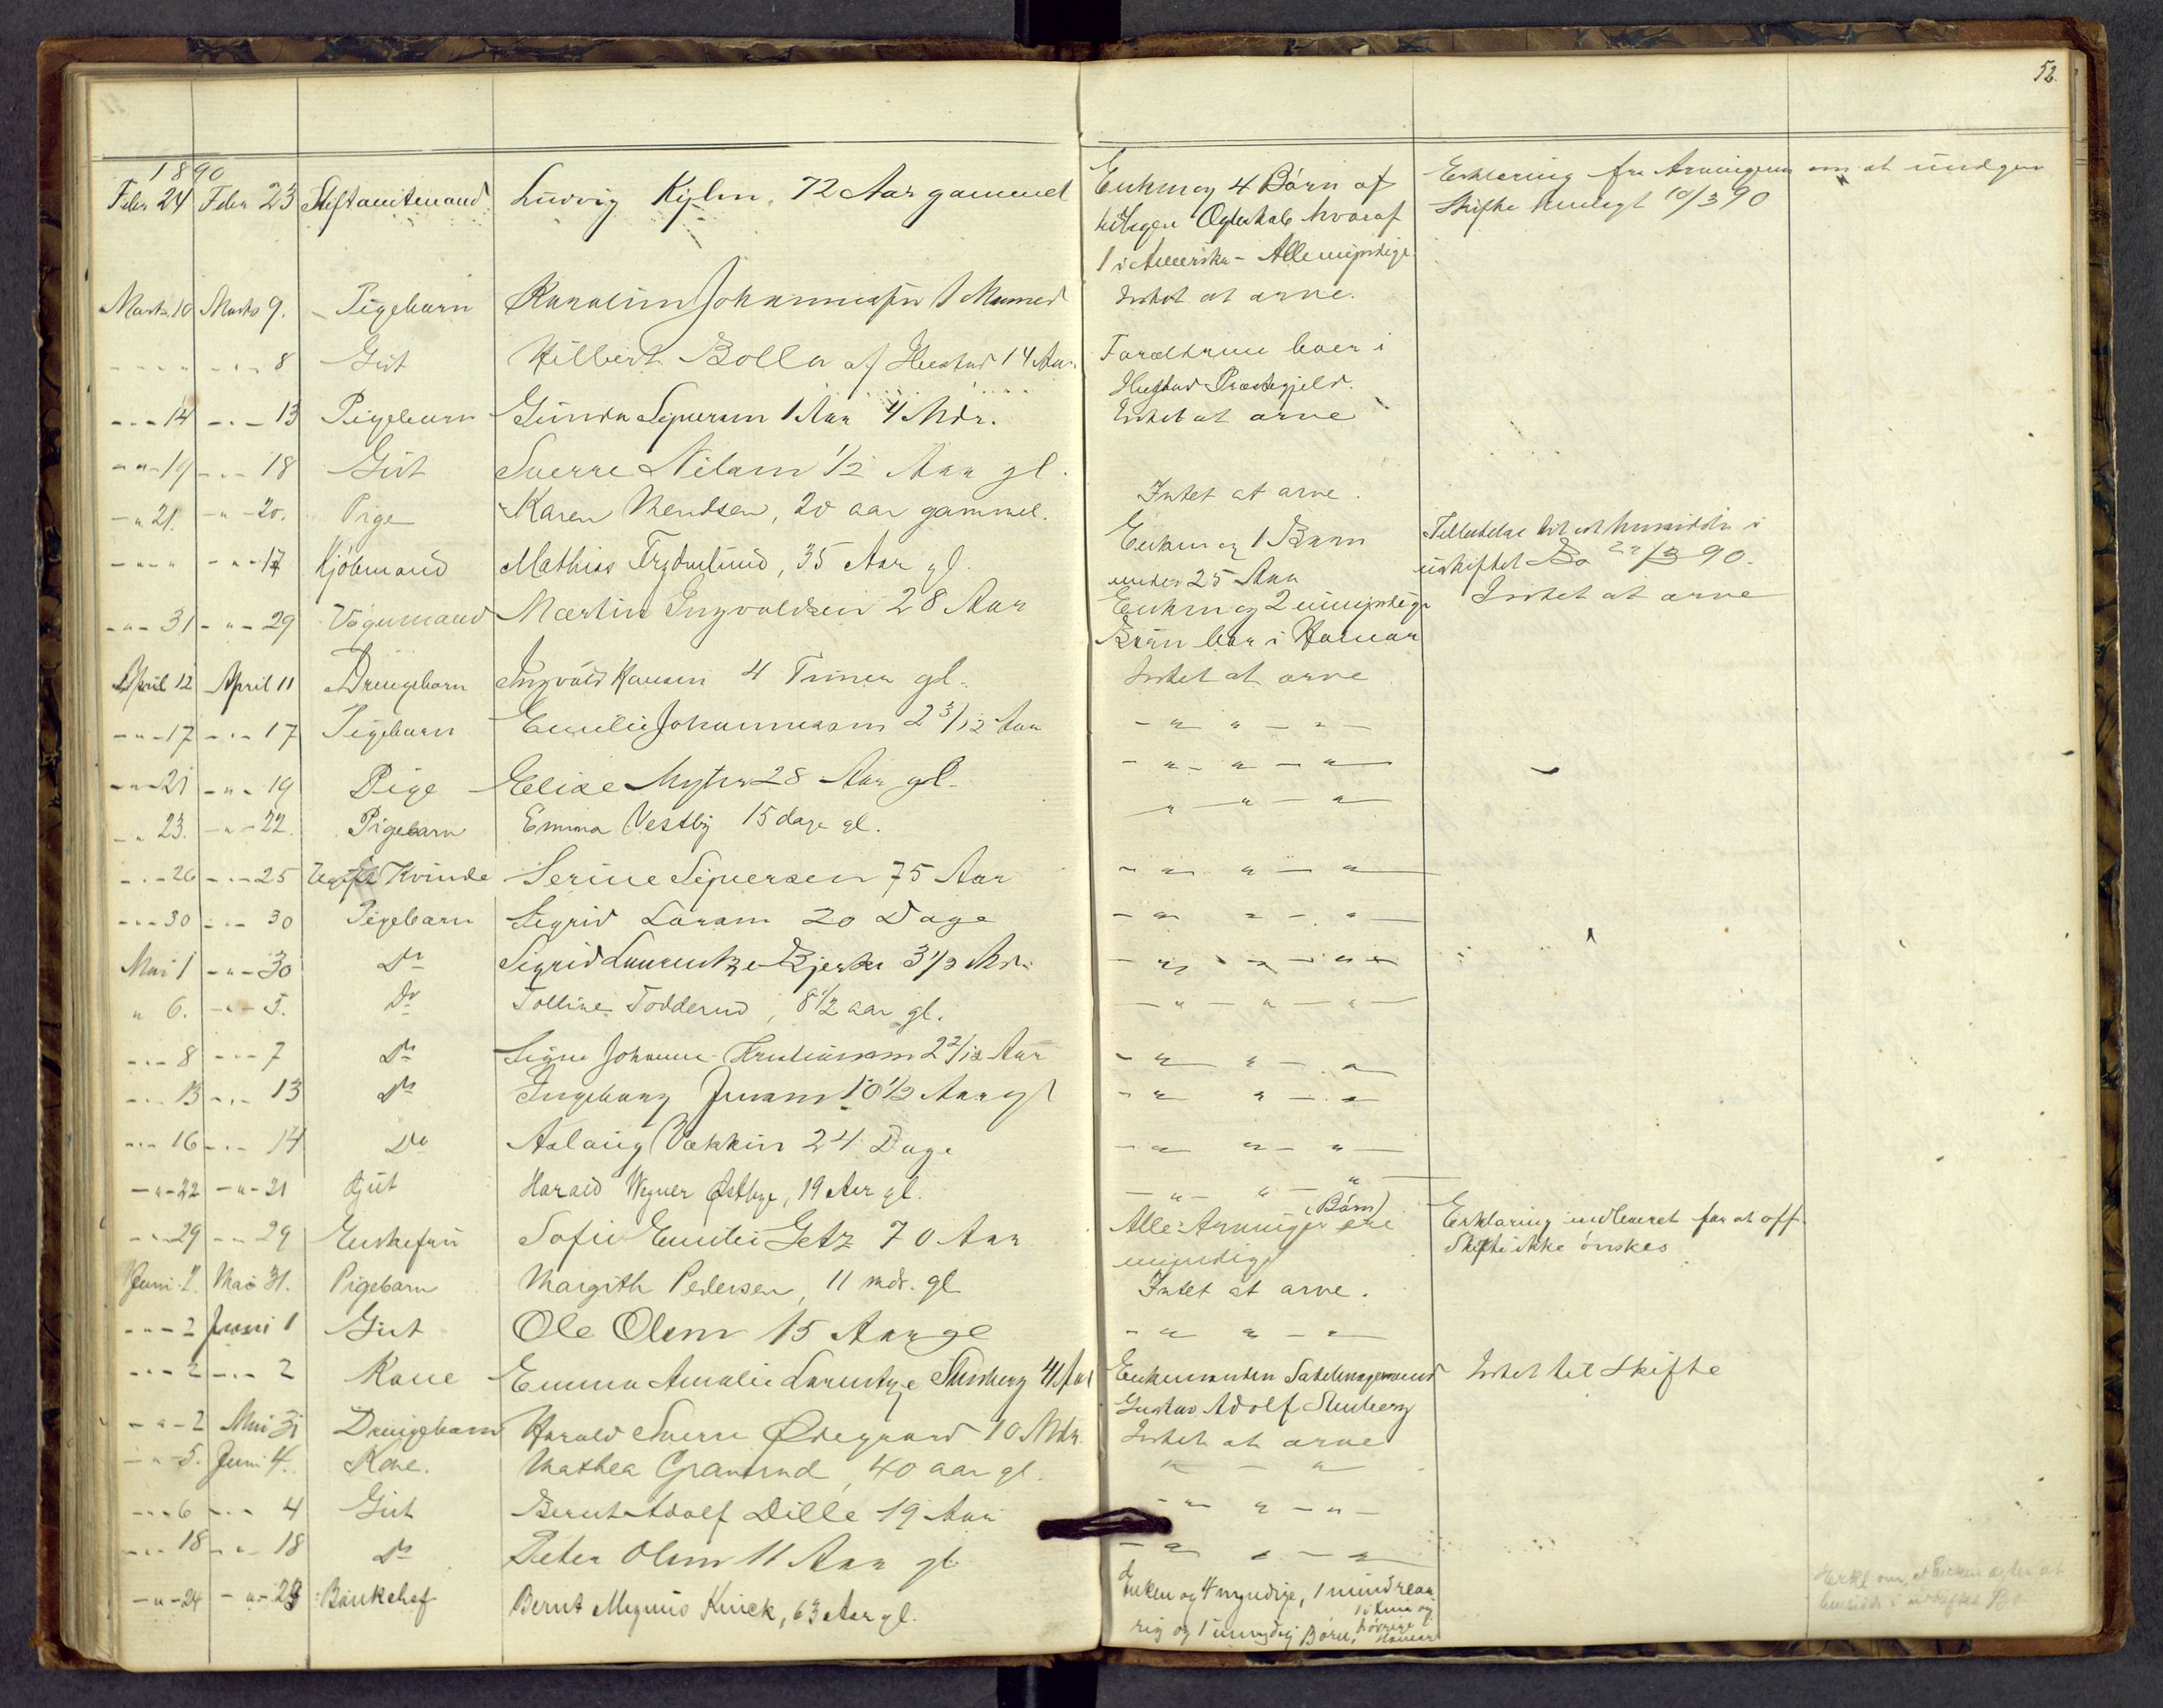 52.
1890
Febr 24 Febr 23 Stiftamtmand Ludvig Kyhn, 72 Aar gammel Enken og 4 Børn af Erklæring fra Arvingerne om at undgaa
Ægteskab hvoraf Skifte 10/3 90
1 i Amerika - Alle myndige.
Marts 10 Marts 9. Pigebarn Johannessen 1 Maaned Intet at arve.
- - - " - - - 8 Gut Hilbert Bolla af Hustad 14 Aar. Forældrene boer i
Hustad Præstegjeld.
- - - 14 - - - 13 Pigebarn Gunda Syversen 1 Aar 4 Mdr. Intet at arve
- " - 19 - - - 18 Gut Sverre Nilsen 1/2 Aar gl.
- " 21. - " - 20. Pige Karen Mendsen, 20 aar gammel. Intet at arve.
- - - " - " - 17 Kjøbmand Mathias Frydenlund, 35 Aar gl. Enken og 1 Barn Tilladelse til at hensidde i
under 25 Aar uskiftet Bo 22/3 90.
- " - 31 - " - 29 Vognmand Martin Ingvaldsen 28 Aar Enken og 2 umyndige Intet at arve
Børn bor i Hamar
April 12 April 11 Drengebarn Ingvald Hansen 4 Timer gl. Intet at arve
- " - 17 - " - 17 Pigebarn Emilie Johannessen 2 3/12 Aar - " " - " -
- " - 21 - " - 19 Pige Elise 28 Aar gl. - " - " - "
- " 23. - " - 22. Pigebarn Emma Vestby 15 dage gl. " - " - "
- - - 26 - - - 25 Ugift Kvinde Serine Syversen 75 Aar - " " - "
- - - 30 - - - 30 Pigebarn Sigrid Larsen 20 Dage - " " - "
Mai 1 - " - 30 Do Sigrid Laurentze Bjerke 3 1/2 Mdr. - " " - "
" 6. - " - 5. Do Tolline Todderud, 8 1/2 aar gl. - " - " - "
- - - 8 - - - 7 Do Signe Johanne Kristiansen 2 2/12 Aar - " " - "
- - - 13 - - - 13 Do Ingeborg Jensen 10 1/2 Aar gl - " " - "
- - - 16 - - - 14 Do Aslaug Bakken 24 Dage - " " - "
- " - 22 - " - 21 Gut Harald Wegner Østbye, 19 Aar gl. - " - " - "
(Børn)
- - - 29 - - - 29 Enkefru Sofie Emilie Getz 70 Aar Alle Arvinger ere Erklæring indleveret for at off.
myndige Skifte ikke ønskes
Juni 2. Mai 31. Pigebarn Margith Pedersen, 11 mdr. gl Intet at arve.
- - - 2 Juni 1 Gut Ole Olsen 15 Aar gl - " " - "
- - - 2 - - - 2 Kone Emma Amalie Larentze Stenberg 41 Aar Enkemanden Sadelmagersvend Intet til Skifte
Gustav Adolf Stenberg
- " - 2 Mai 31 Drengebarn Harald Sverre Ødegaard 10 Mdr. Intet at arve
- " - 5. Juni 4. Kone. Mathea Granerud, 40 aar gl. " - "
- - - 6 - - - 4 Gut Bernt Adolf Dille 19 Aar - " " - " -
- - - 18 - - - 18 Do Peter Olsen 11 Aar gl - " " - "
- " - 24 - " - 23 Bankchef Bernt Magnus Kinck, 63 Aar gl. Enken og 4 myndige, 1 mindreaa
rig og 1 umyndig Børn, Hamar
Erkl om, at Enken agter at
hensidde i uskiftet Bo